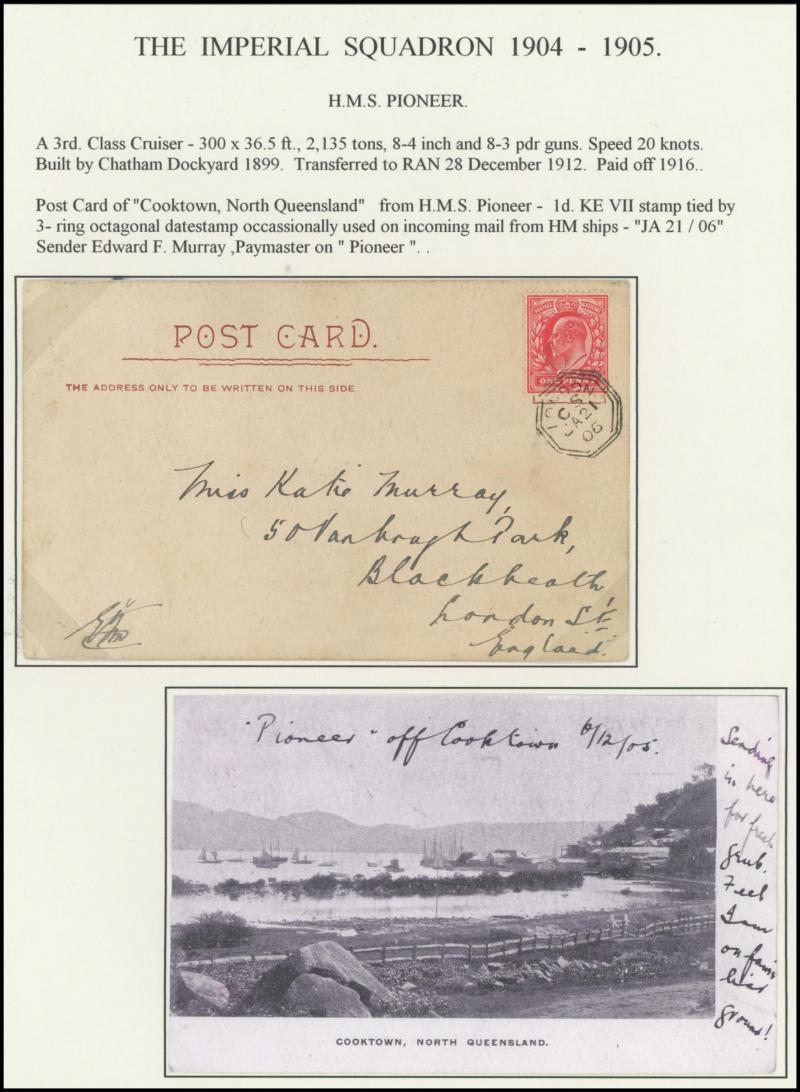 THE IMPERIAL SQUADRON 1904 - 1905.
H.M.S. PIONEER.
A 3rd. Class Cruiser - 300 x 36.5 ft., 2,135 tons, 8-4 inch and 8-3 pdr guns. Speed 20 knots.
Built by Chatham Dockyard 1899. Transferred to RAN 28 December 1912. Paid off 1916..
Post Card of "Cooktown, North Queensland" from H.M.S. Pioneer - 1d. KE VII stamp tied by
3- ring octagonal datestamp occassionally used on incoming mail from HM ships - "JA 21 / 06"
Sender Edward F. Murray ,Paymaster on " Pioneer ". .
POST CARD.
THE ADDRESS ONLY TO BE WRITTEN ON THIS SIDE.
ONE PENNY
LONDON
JA 21
06
Miss Katie Murray,
50 Vanbrugh Park,
Blackheath,
London S.E.
England.
"Pioneer" off Cooktown 6/12/05.
Sending
in here
for fresh
grub.
Feel
I am
on famil
liar
ground!
COOKTOWN, NORTH QUEENSLAND.